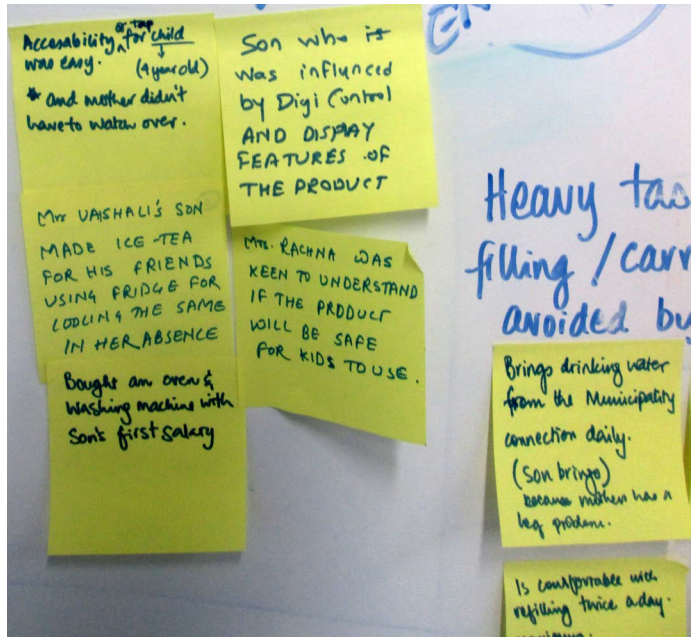 Accesability or tap for child
was easy.
(4 year old)
* and mother didn't
have to watch over.
Son who is
was influnced
by Digi Control
AND DISPLAY
FEATURES OF
THE PRODUCT
Mrs VAISHALI'S SON
MADE ICE-TEA
FOR HIS FRIENDS
USING FRIDGE FOR
COOLING THE SAME
IN HER ABSENCE
Mrs. RACHNA WAS
KEEN TO UNDERSTAND
IF THE PRODUCT
WILL BE SAFE
FOR KIDS TO USE.
Bought an oven &
washing machine with
Son's first salary
Heavy tas
filling / carr
avoided by
Brings drinking water
from the Municipality
connection daily.
(son brings)
because mother has a
leg problem.
Is comfortable with
refilling twice a day.